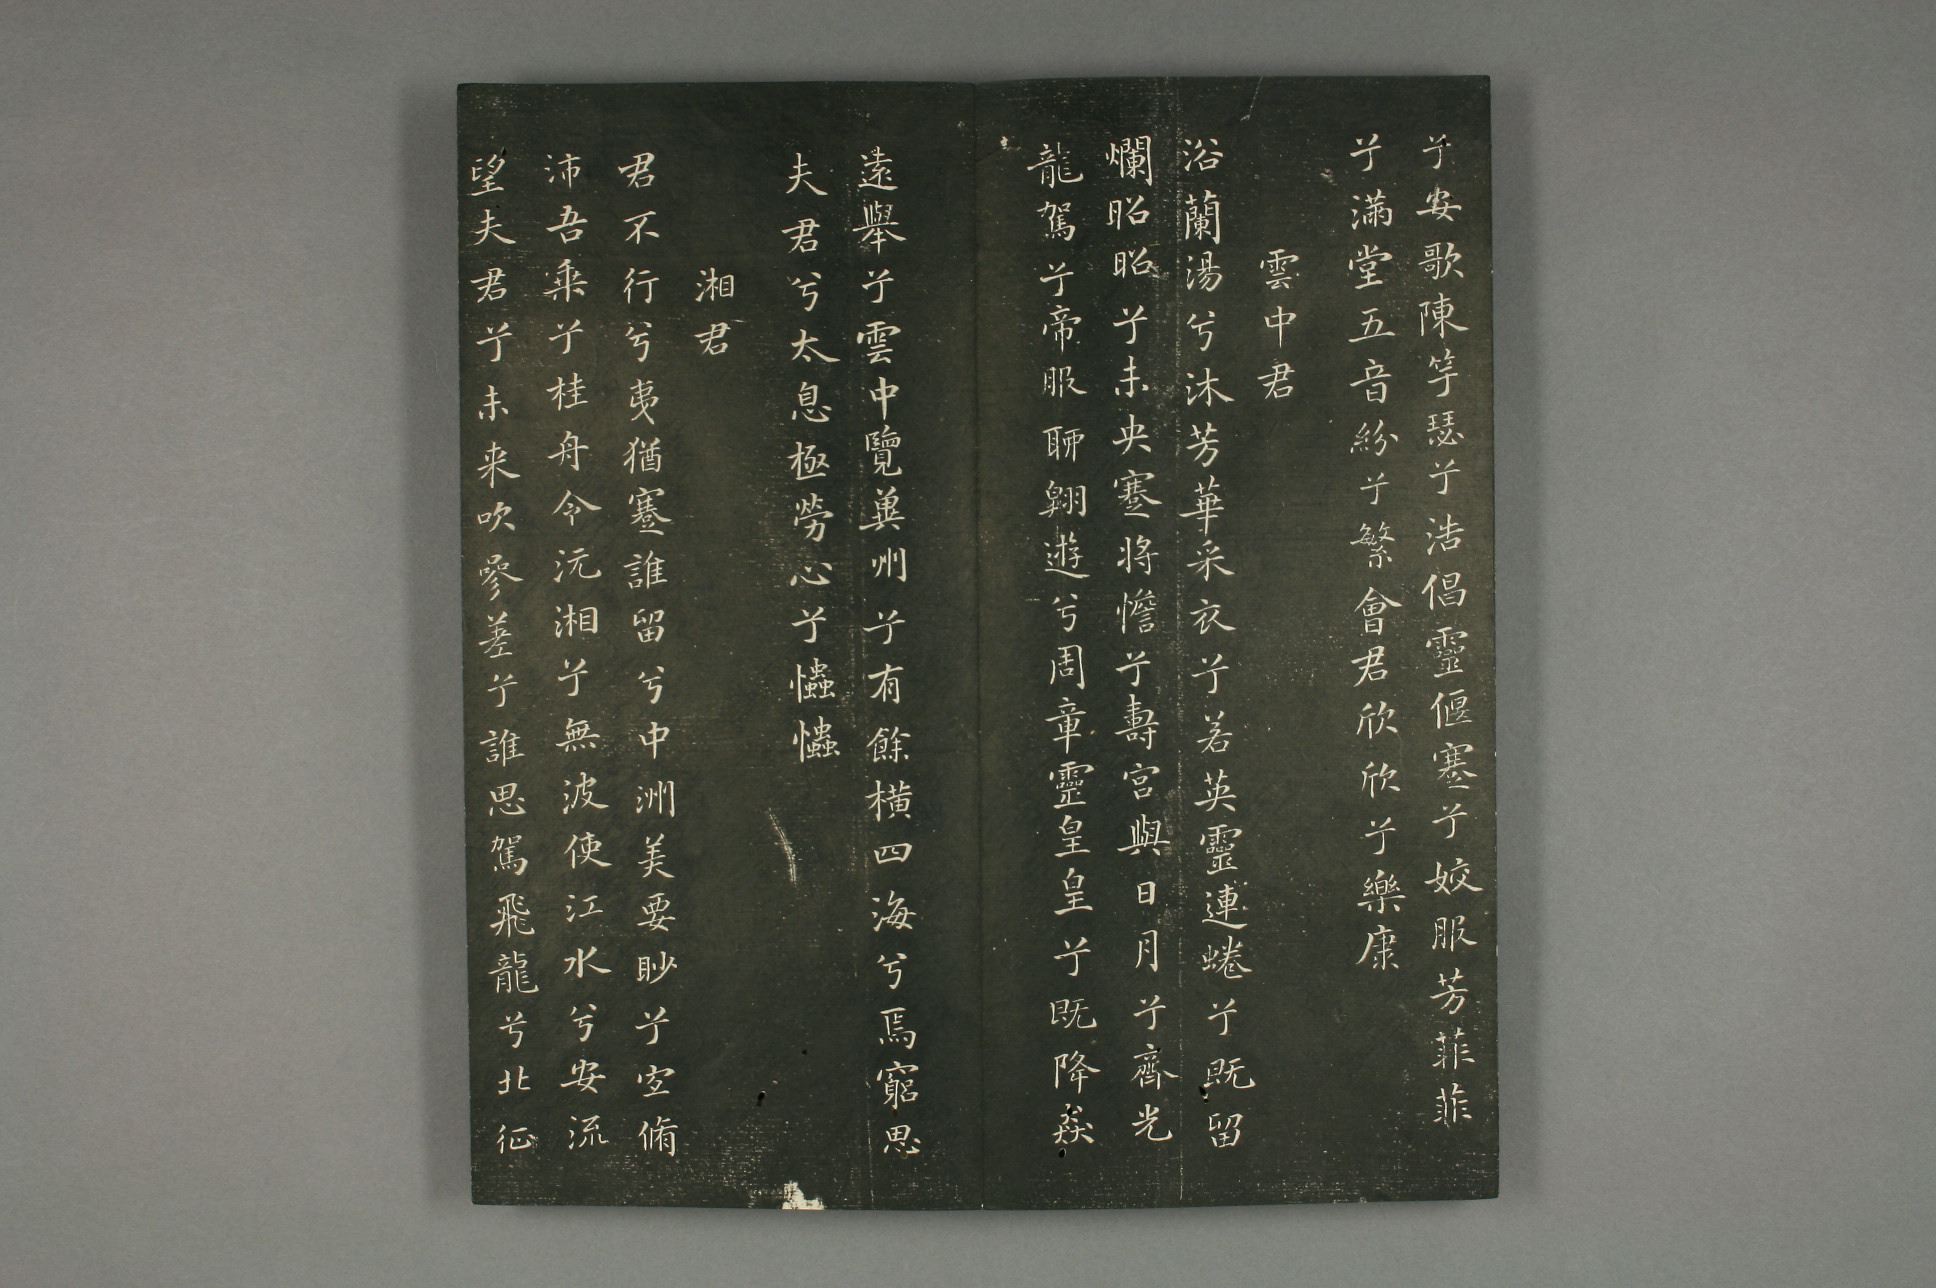 兮安歌陳竽瑟兮浩倡靈偃蹇兮姣服芳菲菲
兮滿堂五音紛兮繁會君欣欣兮樂康
雲中君
浴蘭湯兮沐芳華采衣兮若英靈連蜷兮既留
爛昭昭兮未央蹇將憺兮壽宮與日月兮齊光
龍駕兮帝服聊翱遊兮周章靈皇皇兮既降猋
遠舉兮雲中覽冀州兮有餘橫四海兮焉窮思
夫君兮太息極勞心兮忡忡
湘君
君不行兮夷猶蹇誰留兮中洲美要眇兮宜脩
沛吾乘兮桂舟令沅湘兮無波使江水兮安流
望夫君兮未来吹參差兮誰思駕飛龍兮北征